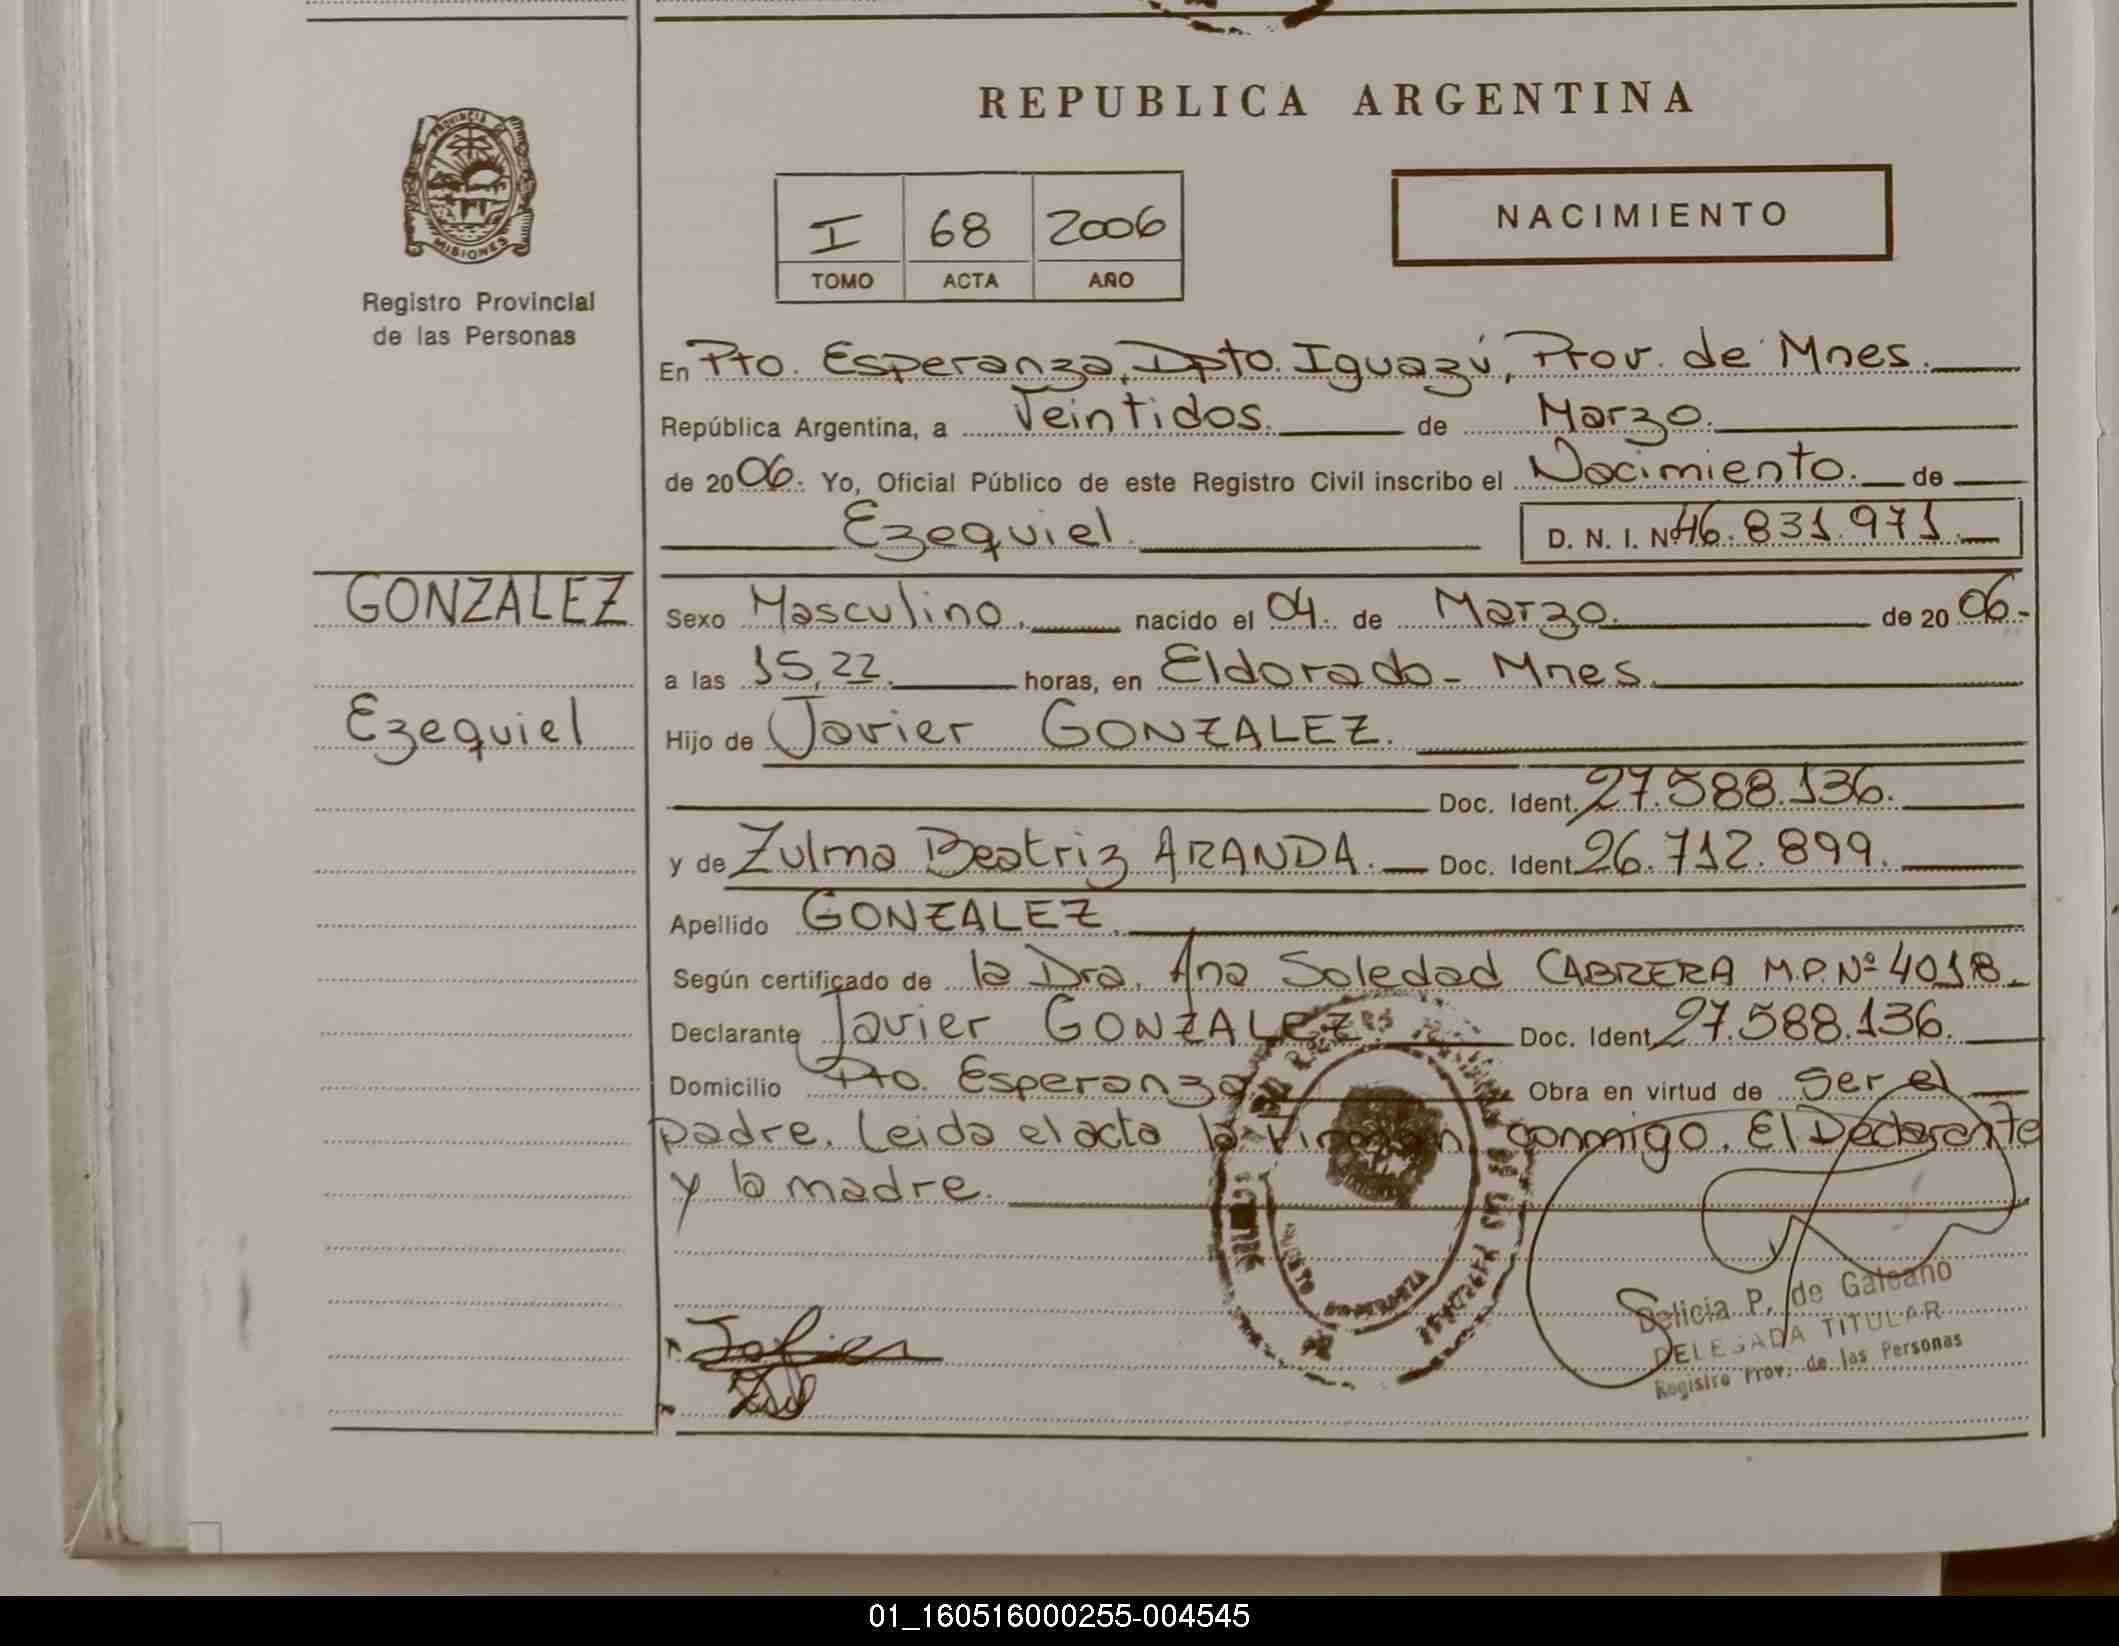 PROVINCIA DE
MISIONES
Registro Provincial
de las Personas
REPUBLICA ARGENTINA
I 68 2006
TOMO ACTA AÑO
NACIMIENTO
En Pto. Esperanza, Dpto. Iguazú, Prov. de Mnes.
República Argentina, a Veintidos. de Marzo.
de 2006. Yo, Oficial Público de este Registro Civil inscribo el Nacimiento. de
Ezequiel. D. N. I. Nº 46.831.971.
GONZALEZ
Ezequiel
Sexo Masculino. nacido el 04. de Marzo. de 2006.-
a las 15,22. horas, en Eldorado - Mnes.
Hijo de Javier GONZALEZ.
Doc. Ident. 27.588.136.
y de Zulma Beatriz ARANDA. Doc. Ident. 26.712.899.
Apellido GONZALEZ.
Según certificado de la Dra. Ana Soledad CABRERA M.P.Nº 4018.
Declarante Javier GONZALEZ. Doc. Ident. 27.588.136.
Domicilio Pto. Esperanza. Obra en virtud de ser el
padre. Leida el acta la firman conmigo. El Declarante
y la madre.
Javier
Delicia P. de Galeano
DELEGADA TITULAR
Registro Prov. de las Personas
01_160516000255-004545